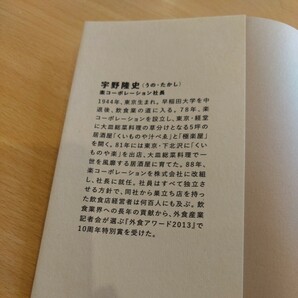 宇野隆史(うの・たかし)
楽コーポレーション社長
1944年、東京生まれ。早稲田大学を中
退後、飲食業の道に入る。78年、楽
コーポレーションを設立し、東京・経堂
に大皿総菜料理の草分けとなる5坪の
居酒屋「くいものや汁べゑ」と「極楽屋」
を開く。81年には東京・下北沢に「くい
ものや楽」を出店、大皿総菜料理で一
世を風靡する居酒屋に育てた。88年、
楽コーポレーションを株式会社に改組
し、社長に就任。社員はすべて独立さ
せる方針で、同社から巣立ち店を持っ
た飲食店経営者は何百人にも及ぶ。飲
食業界への長年の貢献から、外食産業
記者会が選ぶ『外食アワード2013』で
10周年特別賞を受けた。